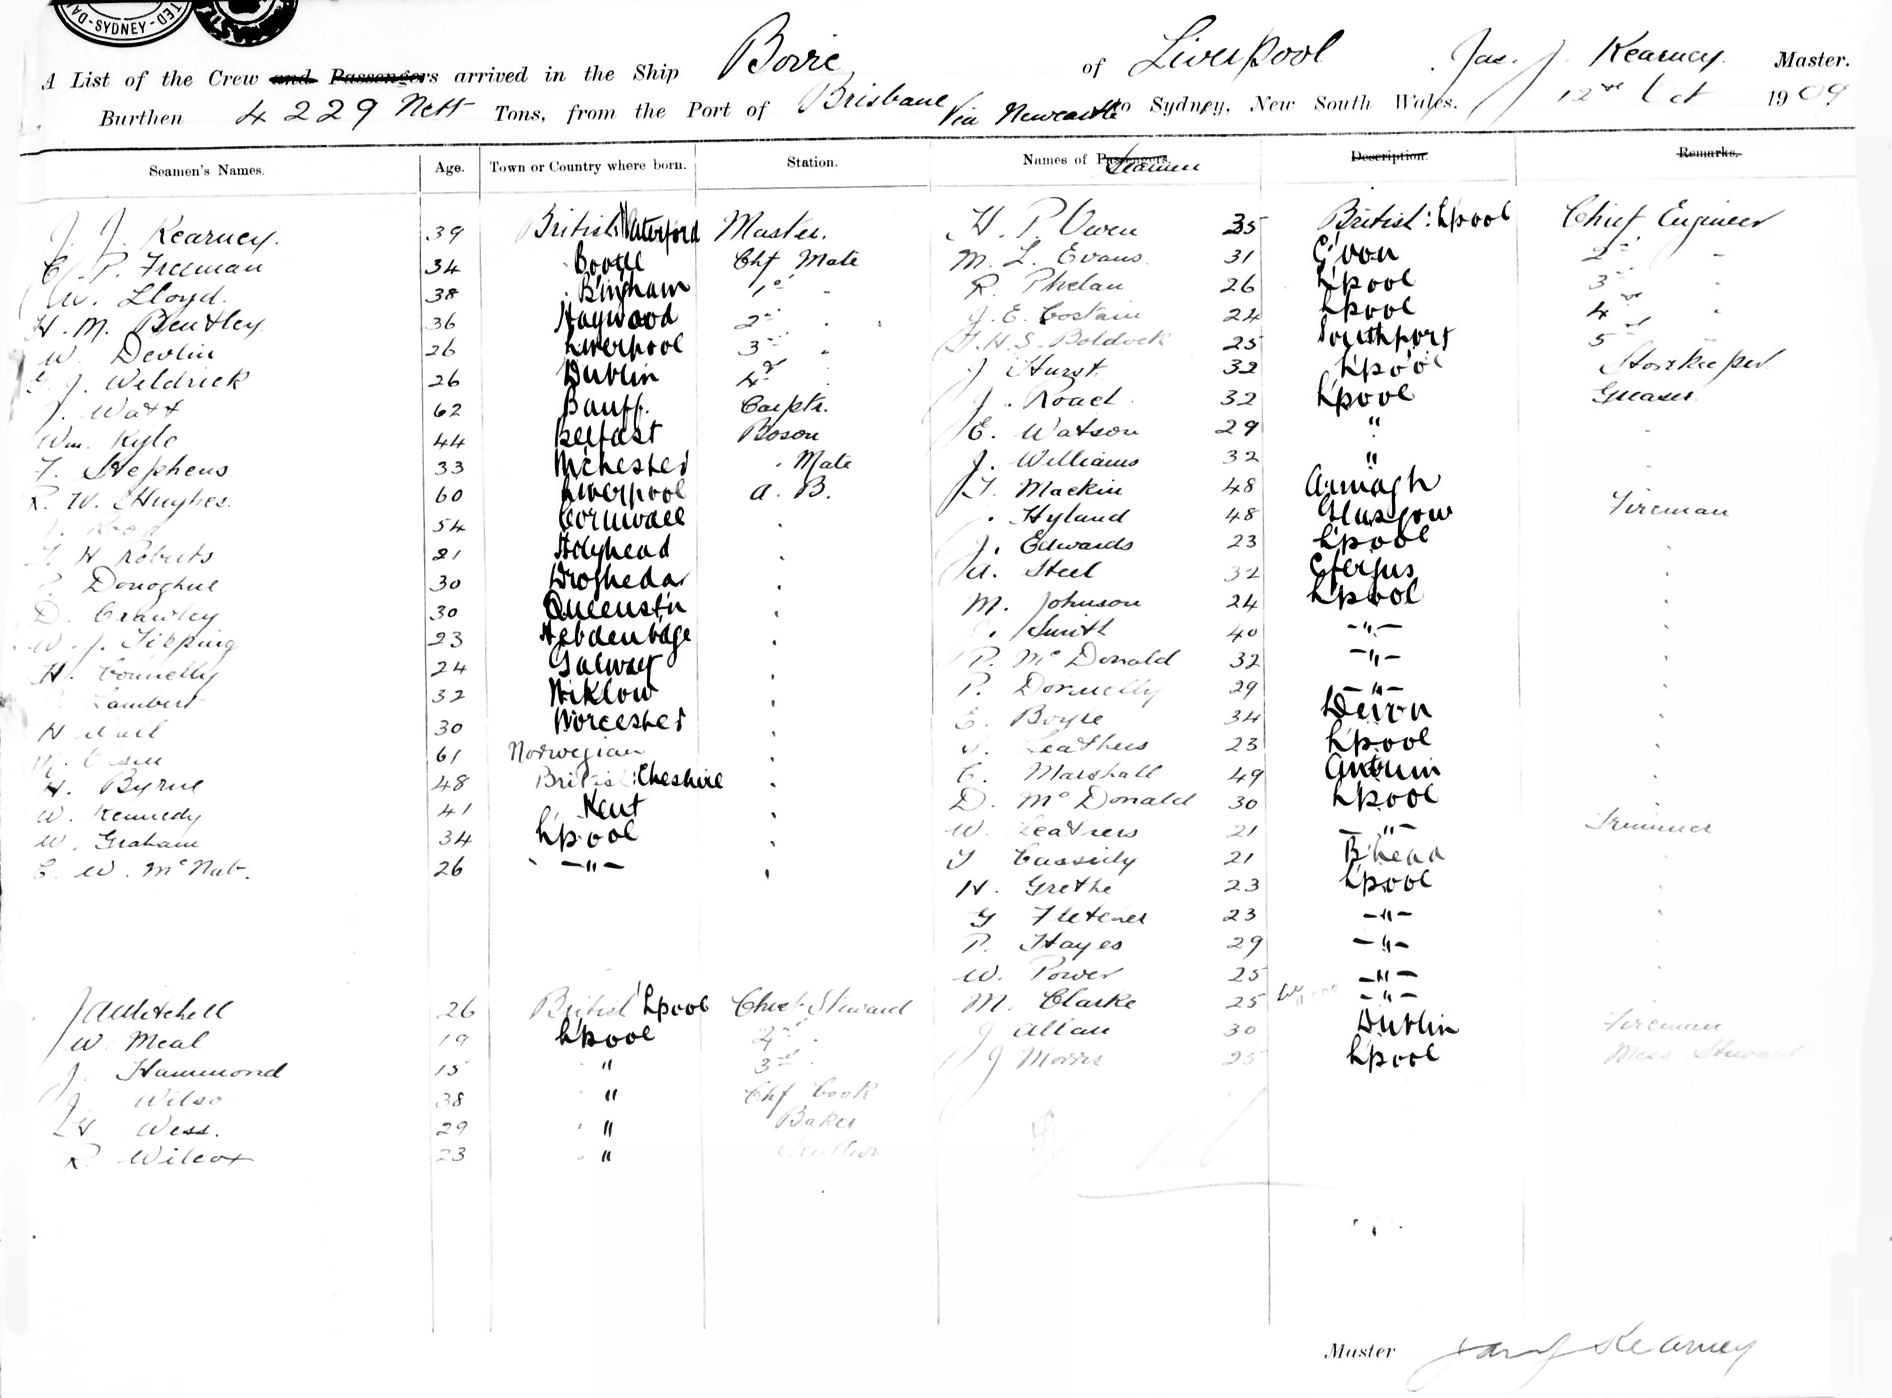 -SYDNEY-
A List of the Crew and Passengers arrived in the Ship Bovic of Liverpool Jas. J. Kearney. Master.
Burthen 4229 Nett Tons, from the Port of Brisbane Via Newcastle to Sydney, New South Wales. 12th Oct 1909
Seamen's Names. Age. Town or Country where born. Station. Names of Passengers. Seamen Description. Remarks.
J. J. Kearney. 39 British: Waterford Master. H. P. Owen 35 British: L'pool Chief Engineer
C. P. Freeman 34 Bootle Chf Mate M. L. Evans 31 C'von 2nd "
W. Lloyd. 38 Bingham 1st " R. Phelan 26 L'pool 3rd
H. M. Bentley 36 Haywood 2nd . J. E. Costain 24 L'pool 4th "
W. Devlin 26 Liverpool 3rd " T. H. S. Boldock 25 Southport 5th
J. Weldrick 26 Dublin 4th J Hurst 32 L'pool Storekeeper
J. Watt 62 Banff. Carptr. J. Road 32 L'pool Greaser.
Wm. Kyle 44 Belfast Boson E. Watson 29 "
T. Stephens 33 M'chester " Mate J. Williams 32 "
R. W. Hughes. 60 Liverpool A. B. T. Mackin 48 Armagh
54 Cornwall Hyland 48 Glasgow Fireman
H Roberts 21 Holyhead J. Edwards 23 L'pool
Donoghue 30 Drogheda A. Steel 32 C'fergus
D. Crawley 30 Queenst'n M. Johnson 24 L'pool
W. J. Tipping 23 Hebdenb'dge Smith 40 -"-
H. Connelly 24 Galway P. McDonald 32 -"-
Lambert 32 Wiklow P. Donnelly 29 -"-
H Hall 30 Worcester E. Boyle 34 Devon
M. Olsen 61 Norwegian Leathers 23 L'pool
H. Byrne 48 British: Cheshire C. Marshall 49 Antrim
W. Kennedy 41 Kent D. McDonald 30 L'pool
W. Graham 34 L'pool W. Leathers 21 -"- Trimmer
C. W. McNab. 26 -"- T Cassidy 21 B'head
H. Grethe 23 L'pool
G Fletcher 23 -"-
P. Hayes 29 -"-
W. Power 25 -"-
J A Mitchell 26 British L'pool Chief Steward M. Clarke 25 -"-
W. Meal 19 L'pool 2nd " J Allan 30 Dublin Fireman
J. Hammond 15 " 3rd " J Morris 25 L'pool Mess Steward
J. Wilso 38 " Chf Cook
Wess. 29 " Baker
R. Wilcox 23 " Scullion
Master Jas J Kearney